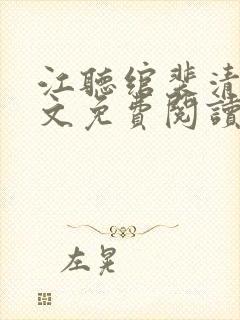 江聽綰裴清
文免費閱讀
左晃